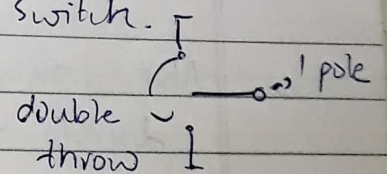 switch.
1 pole
double
throw